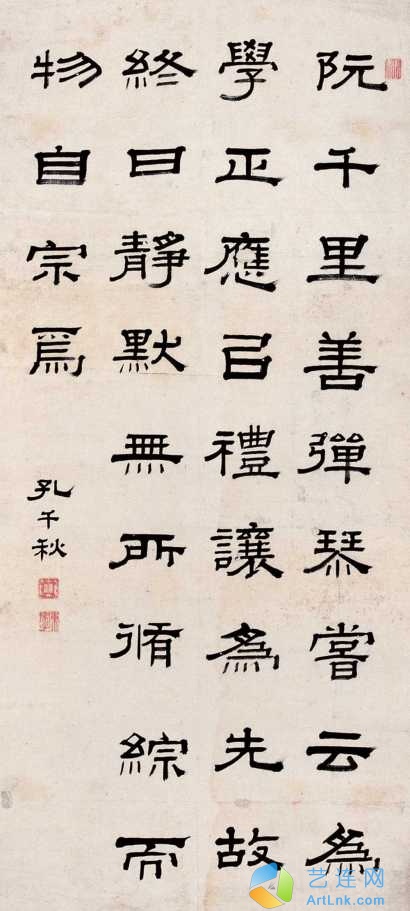 阮千里善彈琴嘗云為
學正應㠯禮讓為先故
終日靜默無所脩綜而
物自宗焉
孔千秋
艺连网
ArtLnk.com